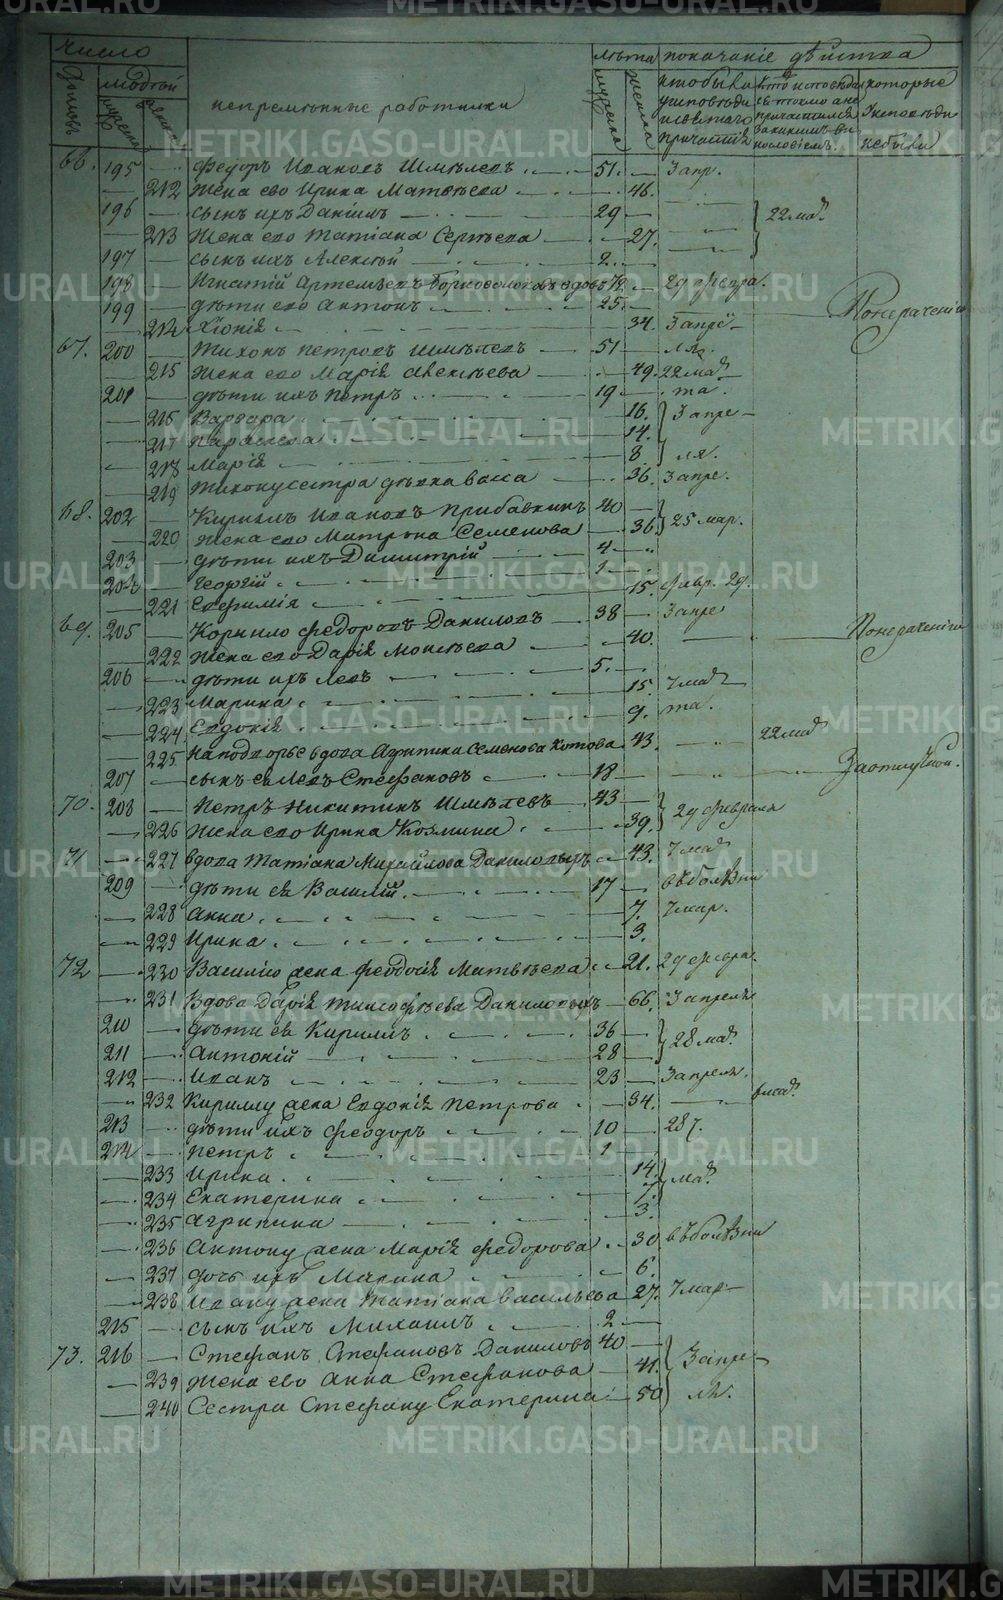 METRIKI.GASO-URAL.RU
число лѣта показаніе дѣйства
домовъ людей непремѣнные работники мужеска женска кто были у исповѣди и святаго причастія которые у исповѣди не были
66. 195 Федоръ Ивановъ Шмѣлевъ 51. 3 апр.
212 жена ево Ирина Матвѣева 46.
196 сынъ ихъ Даніилъ 29 22 мар.
213 жена ево Татіана Сергѣева 27.
197 сынъ ихъ Алексѣй 2.
198 Игнатій Артемьевъ вдовъ 29 февра.
199 дѣти ево Антонъ 25. По нераченію
214 Хіонія 34. 3 апре-
67. 200 Тихонъ Петровъ Шмѣлевъ 51 ля.
215 жена ево Марія Авексѣева 49. 22 мар
201 дѣти ихъ Петръ 19 та.
216 Варвара 16. 3 апре-
217 Параскева 14.
218 Марія 8 ля.
219 Тихону сестра дѣвка Васса 36. 3 апре.
68. 202 Кириллъ Ивановъ Прибавкинъ 40
220 жена ево Матрона Семенова 36. 25 мар.
203 дѣти ихъ Димитрій 4
204 Георгій 1
221 Евфимія 15. февр. 29.
69. 205 Корнило Федоровъ Даниловъ 38 3 апре
222 жена ево Дарія Моисѣева 40. По нераченію
206 дѣти ихъ Левъ 5.
223 Марина 15. 7 мар
224 Евдокія 9. та.
225 На подворье вдова Агрипина Семенова Котова 43. 22 мар
207 сынъ ея Левъ Стефановъ 18 За отлучкой.
70. 208 Петръ Никитинъ Шмѣлевъ 43 29 февраля
226 жена ево Ирина Козмина 39.
71 227 вдова Татіана Михайлова Даниловыхъ 43. 7 мар
209 дѣти ея Василій 17 въ болѣзни
228 Анна 7. 7 мар.
229 Ирина 3.
72 230 Василію жена Феодосія Матвѣева 21. 29 февра.
231 Вдова Дарія Тимофѣева Даниловыхъ 66. 3 апреля
210 дѣти ея Кириллъ 36 28 мар.
211 Антоній 28
212 Иванъ 23 3 апреля.
232 Кирилу жена Евдокія Петрова 34.
213 дѣти ихъ Феодоръ 10 28
214 Петръ 1
233 Ирина 14. мар.
234 Екатерина 7.
235 Агрипина 3.
236 Антону жена Марія Федорова 30 въ болѣзни
237 дочь ихъ Марина 6.
238 Ивану жена Татіана Васильева 27. 7 мар-
215 сынъ ихъ Михаилъ 2
73. 216 Стефанъ Стефановъ Даниловъ 40
239 жена ево Анна Стефанова 41. 3 апре-
240 Сестра Стефану Екатерина 50 ля.